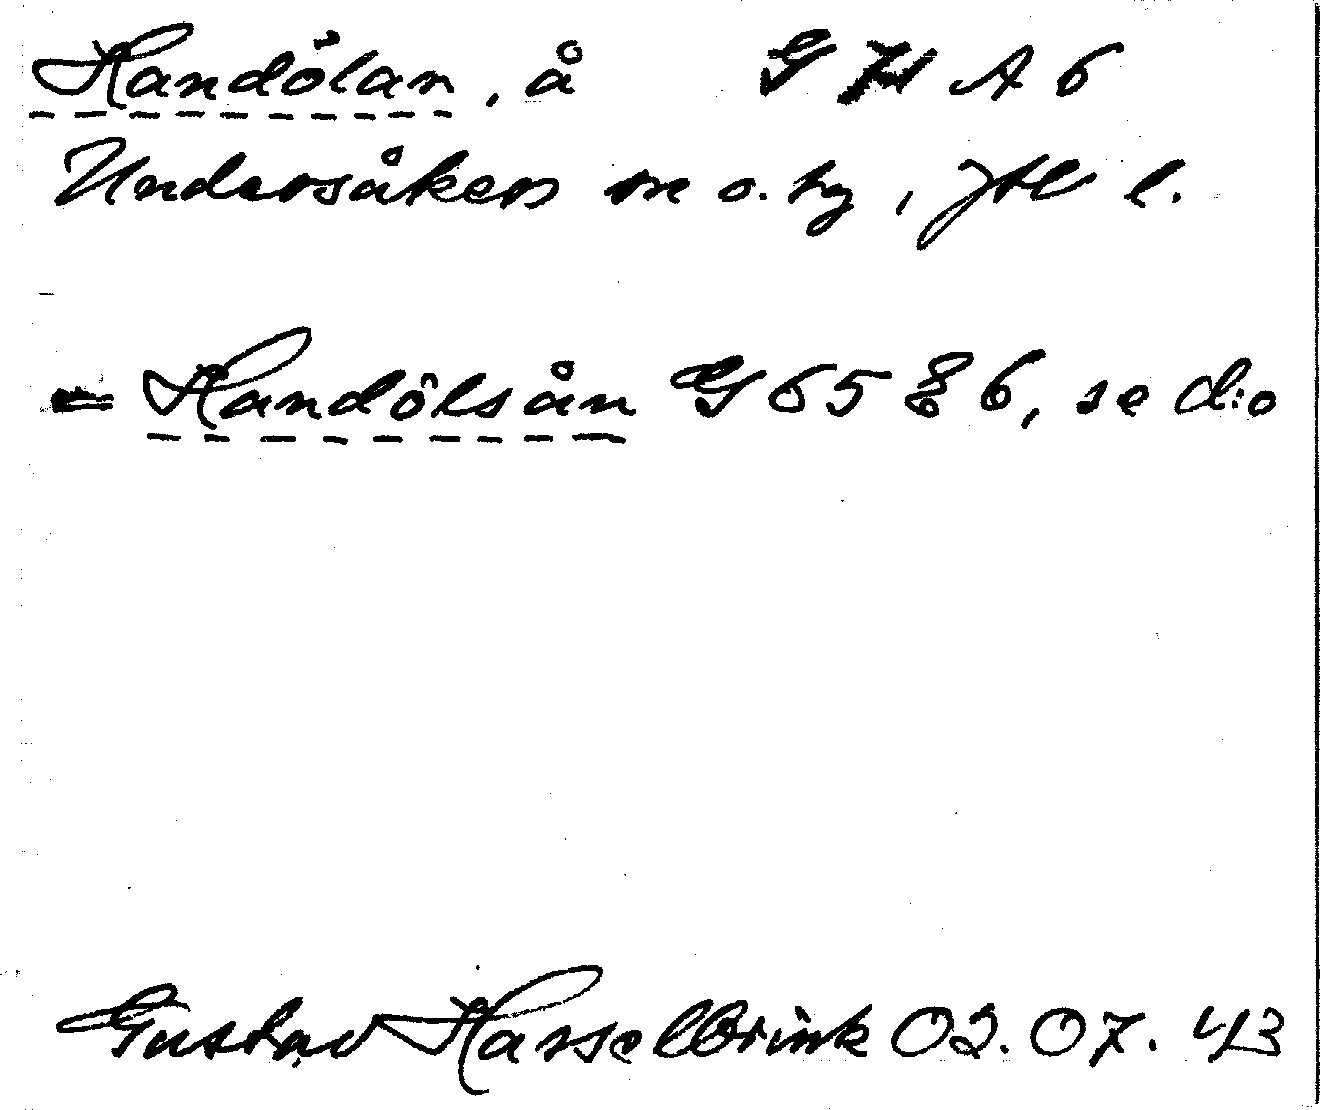 Handölan, å G 71 A 6
Undersåkers sn o. hg, Jtl l.
= Handölsån G 65 E 6, se d:o
Gustav Hasselbrink 02.07.43